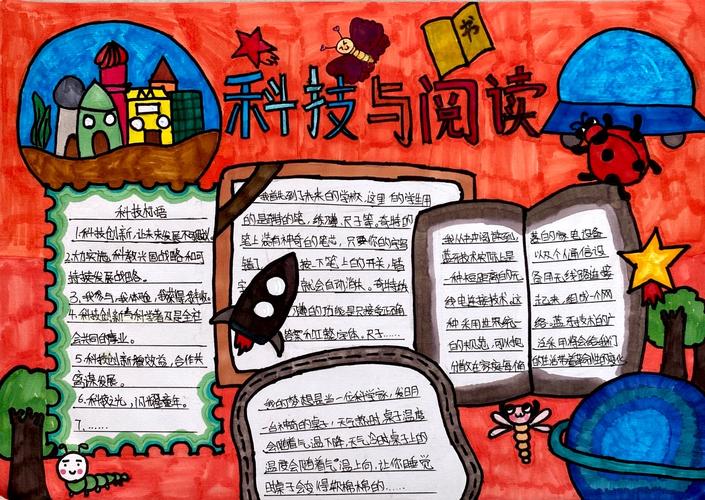 书
科技与阅读
科技标语
1.科技创新,让未来发展不可限
2.加实施,科教兴国战略和可
持续发展战略。
3.我参与、我体验、我
4.科技创新与科学普及是全社
会共同的事业。
5.科技创新 效益,合作共
谋发展。
6.科技之光,闪耀童年。
7、……
我首先到了未来的学校,这里的学生用
的是奇特的笔,练习薄、尺子等。奇特的
笔上装有神奇的笔芯,只要你的字写
错了 按一下笔上的开关,错
字 就会自动消失。奇特的
薄的功能是只接答正确
答案和工整字体。尺子……
我从书中阅读到,
蓝牙技术实际上是
一种短距离的无
线电连接技术,这
种采用世界统一
的规范,可以把
分散在家庭每个
基的家电设备
以及个人通信设
备用无线路连接
起来,组成一个网
络,蓝牙技术的广
泛采用将会给我们
的生活带着革命性的变化
我的梦想是当一位科学家,发明
一台神奇的桌子,天气热时桌子温度
会随着气温下降,天气冷时桌子上的
温度会随着气温上向,让你睡觉
时桌子会变得软棉棉的……